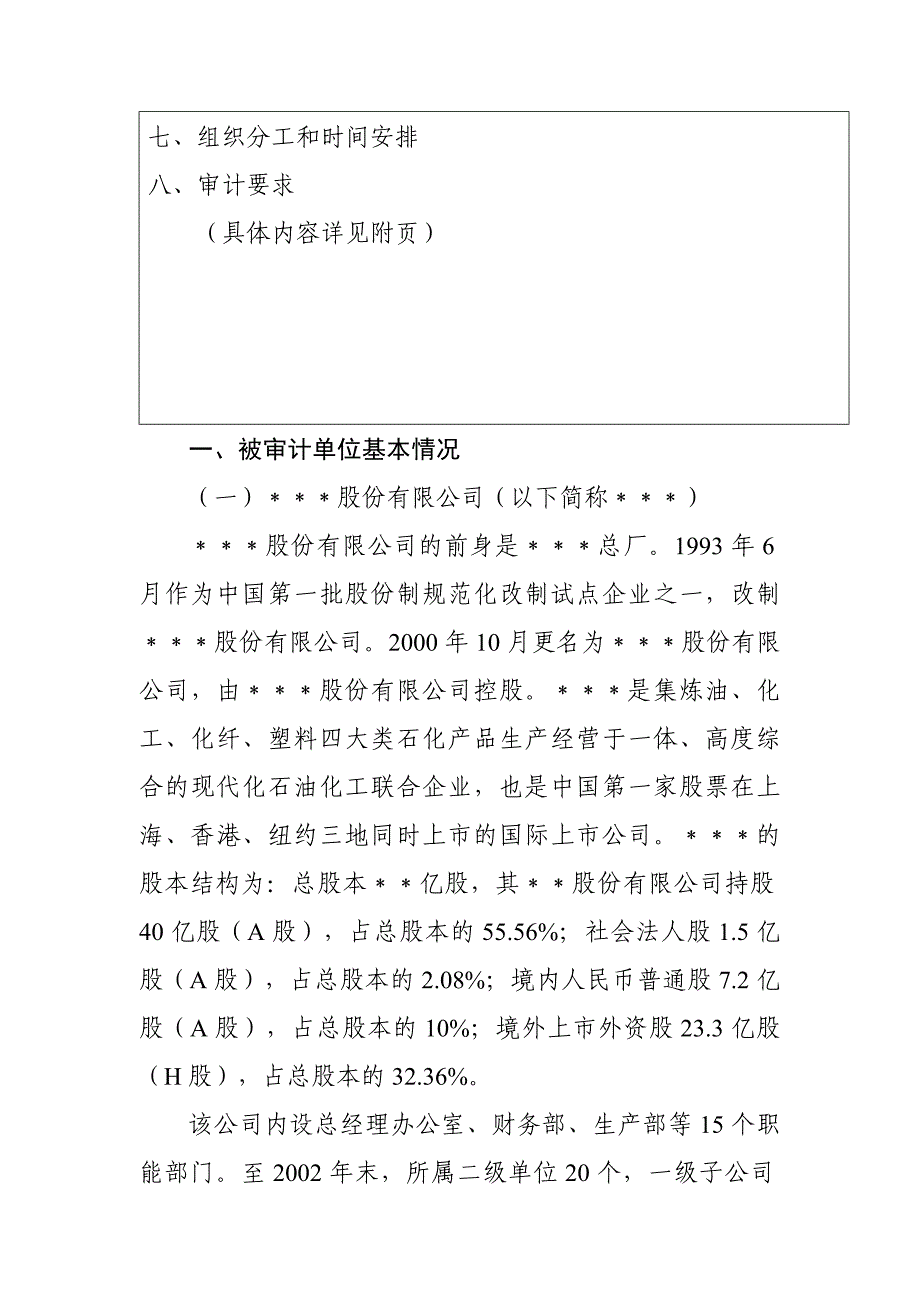 七、组织分工和时间安排
八、审计要求
（具体内容详见附页）
一、被审计单位基本情况
（一）＊＊＊股份有限公司（以下简称＊＊＊）
＊＊＊股份有限公司的前身是＊＊＊总厂。1993 年 6
月作为中国第一批股份制规范化改制试点企业之一，改制
＊＊＊股份有限公司。2000 年 10 月更名为＊＊＊股份有限
公司，由＊＊＊股份有限公司控股。＊＊＊是集炼油、化
工、化纤、塑料四大类石化产品生产经营于一体、高度综
合的现代化石油化工联合企业，也是中国第一家股票在上
海、香港、纽约三地同时上市的国际上市公司。＊＊＊的
股本结构为：总股本＊＊亿股，其＊＊股份有限公司持股
40 亿股（A 股），占总股本的 55.56%；社会法人股 1.5 亿
股（A 股），占总股本的 2.08%；境内人民币普通股 7.2 亿
股（A 股），占总股本的 10%；境外上市外资股 23.3 亿股
（H 股），占总股本的 32.36%。
该公司内设总经理办公室、财务部、生产部等 15 个职
能部门。至 2002 年末，所属二级单位 20 个，一级子公司